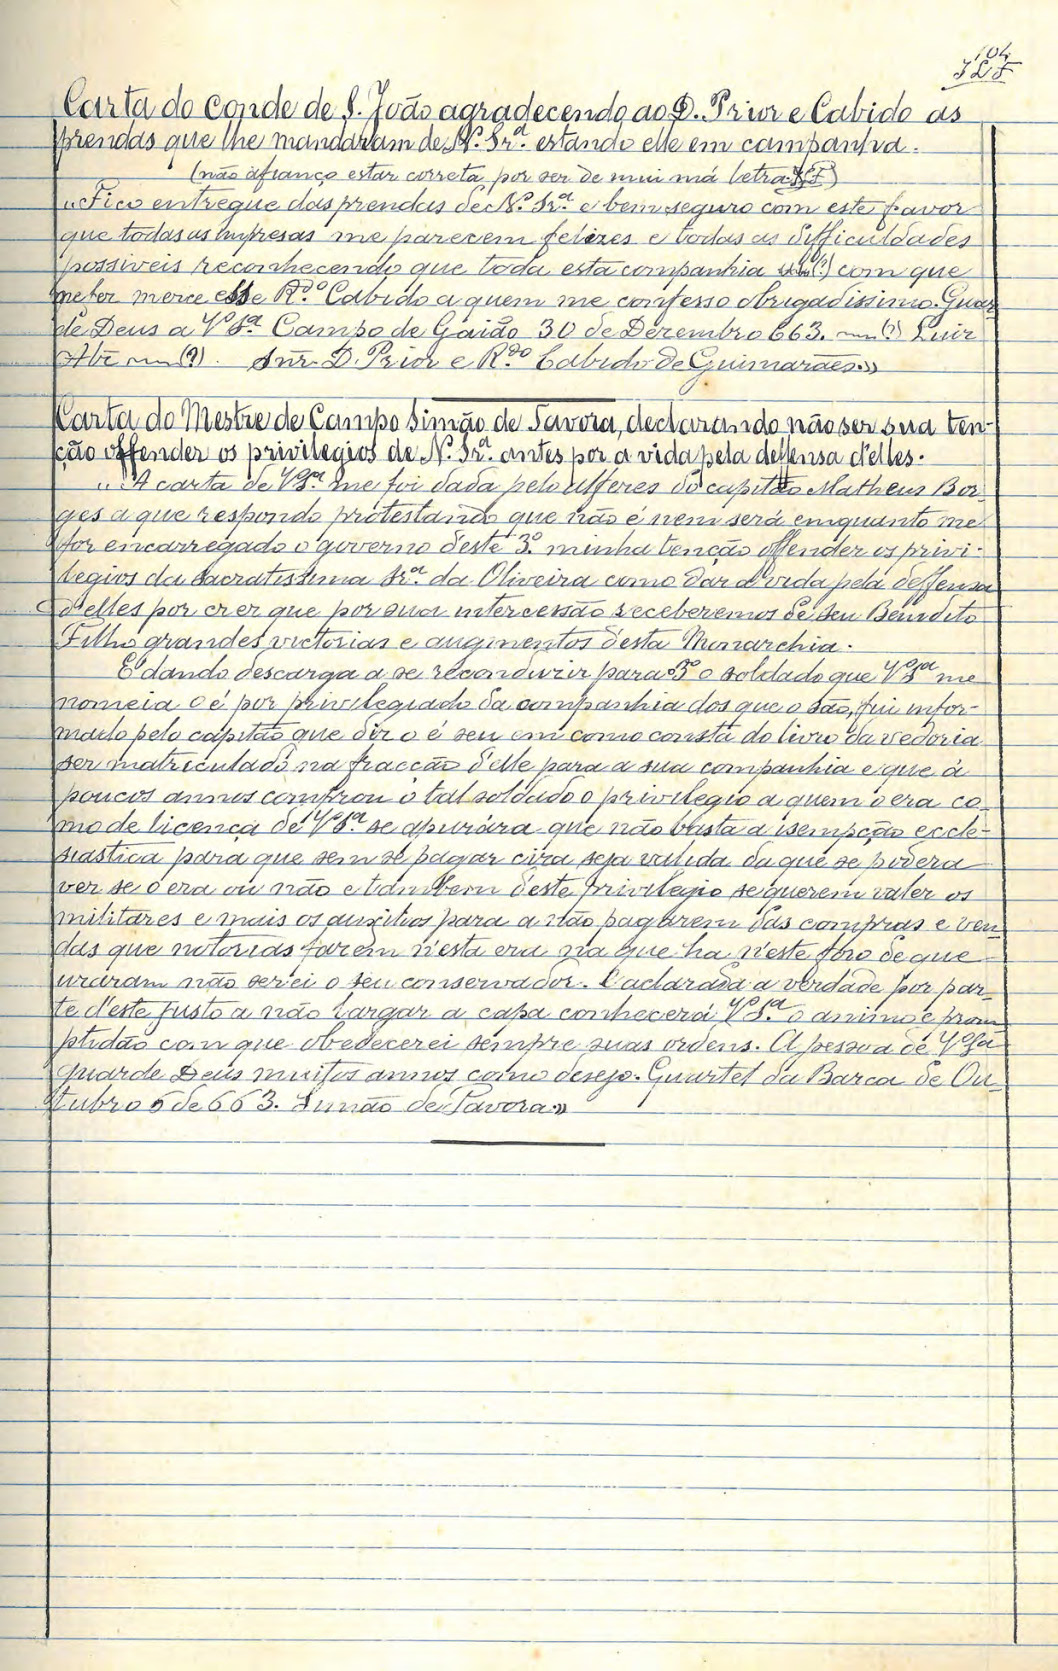 104
JLF
Carta do Conde de S. João agradecendo ao D. Prior e Cabido as
prendas que lhe mandaram de N.ª Sr.ª estando elle em campanha.
(não afianço estar correta por ser de mui má letra JLF)
"Fico entregue das prendas de N.ª Sr.ª e bem seguro com este favor
que todas as impresas me parecem felizes e todas as difficuldades
possiveis reconhecendo que toda esta companhia (?) com que
merce esse R.do Cabido a quem me confesso obrigadissimo. Guar-
de Deus a V.ª S.ª Campo de Gaião 30 de Dezembro 663. (?) Luiz
(?). Snr. D. Prior e R.do Cabido de Guimarães."
Carta do Mestre de Campo Simão de Tavora, declarando não ser sua ten-
ção offender os privilegios de N.ª Sr.ª antes por a vida pela deffensa d'elles.
"A carta de V.ª S.ª me foi dada pelo alferes do capitão Matheus Bor-
ges a que respondo protestando que não é nem será emquanto me
for encarregado o governo deste 3.º minha tenção offender os privi-
legios da sacratissima Sr.ª da Oliveira como dar a vida pela deffensa
d'elles por crer que por sua intercessão receberemos de seu Bendito
Filho grandes victorias e augmentos desta Monarchia.
E dando descarga a se reconduzir para o 3.º o soldado que V.ª S.ª me
nomeia o é por privilegiado da companhia dos que o são, fui infor-
mado pelo capitão que diz o é seu em como consta do livro da vedoria
ser matriculado na fracção d'elle para a sua companhia e que á
poucos annos comprou o tal soldado o privilegio a quem o era co-
mo de licença de V.ª S.ª se apurára que não basta a isempção eccle-
siastica para que sem se pagar ciza seja valida da que se podera
ver se o era ou não e tambem d'este privilegio se querem valer os
militares e mais os auxilios para a não pagarem das compras e ven-
das que notorias fazem n'esta era na que ha n'este foro de que
uraram não serei o seu conservador. E aclarada a verdade por par-
te d'este justo a não largar a capa conhecerá V.ª S.ª o animo e prom-
ptidão com que obedecerei sempre suas ordens. A pessoa de V.ª S.ª
guarde Deus muitos annos como desejo. Quartel da Barca de Ou-
tubro 6 de 663. Simão de Tavora."